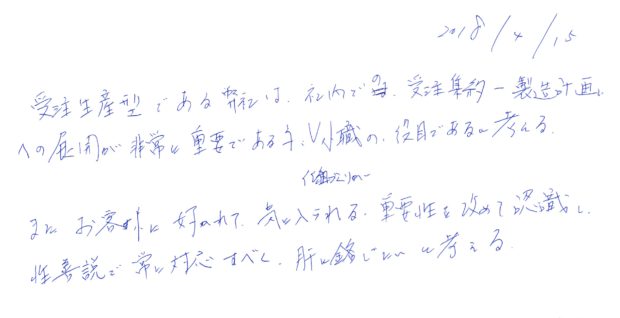 2018/4/15
受注生産型である弊社は、社内での、受注集約ー製造計画
への展開が非常に重要であるます、小職の、役目であると考える。
また お客様に 好かれて、気に入られる、重要性を 改めて認識し、
性善説で常に対応すべく、肝に銘じたいと考える。